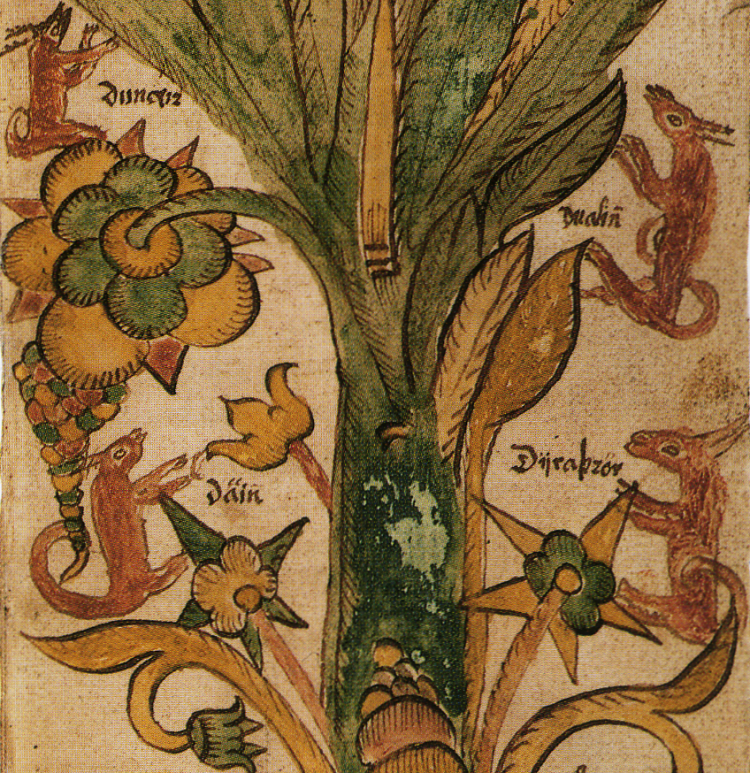 Duneyr
Dualin̄
Däin̄
Dijraþrör